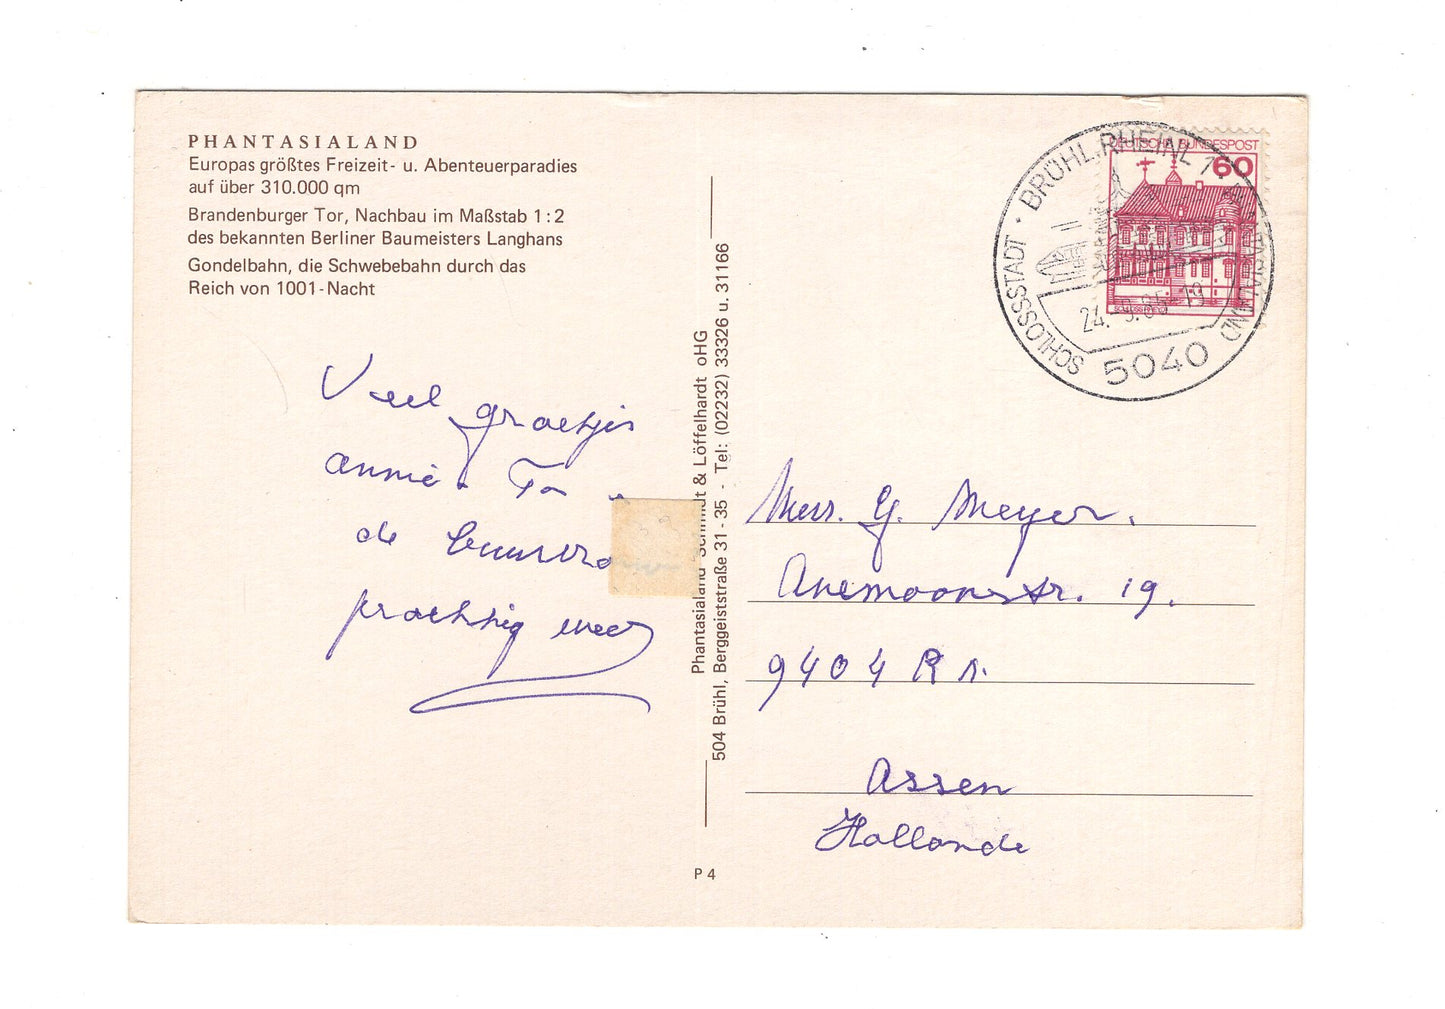 PHANTASIALAND
Europas größtes Freizeit- u. Abenteuerparadies
auf über 310.000 qm
Brandenburger Tor, Nachbau im Maßstab 1:2
des bekannten Berliner Baumeisters Langhans
Gondelbahn, die Schwebebahn durch das
Reich von 1001-Nacht
Veel groetjis
annie. Ton
de
prachtig weer
Phantasialand Schmidt & Löffelhardt oHG
504 Brühl, Berggeiststraße 31 - 35 - Tel: (02232) 33326 u. 31166
P 4
DEUTSCHE BUNDESPOST
60
SCHLOSSSTADT · BRÜHL, RHEINL 1 · PHANTASIALAND
24.-9.85-19
5040
G. Meyer.
Anemoonstr. 19.
9404 R
Assen
Hollande